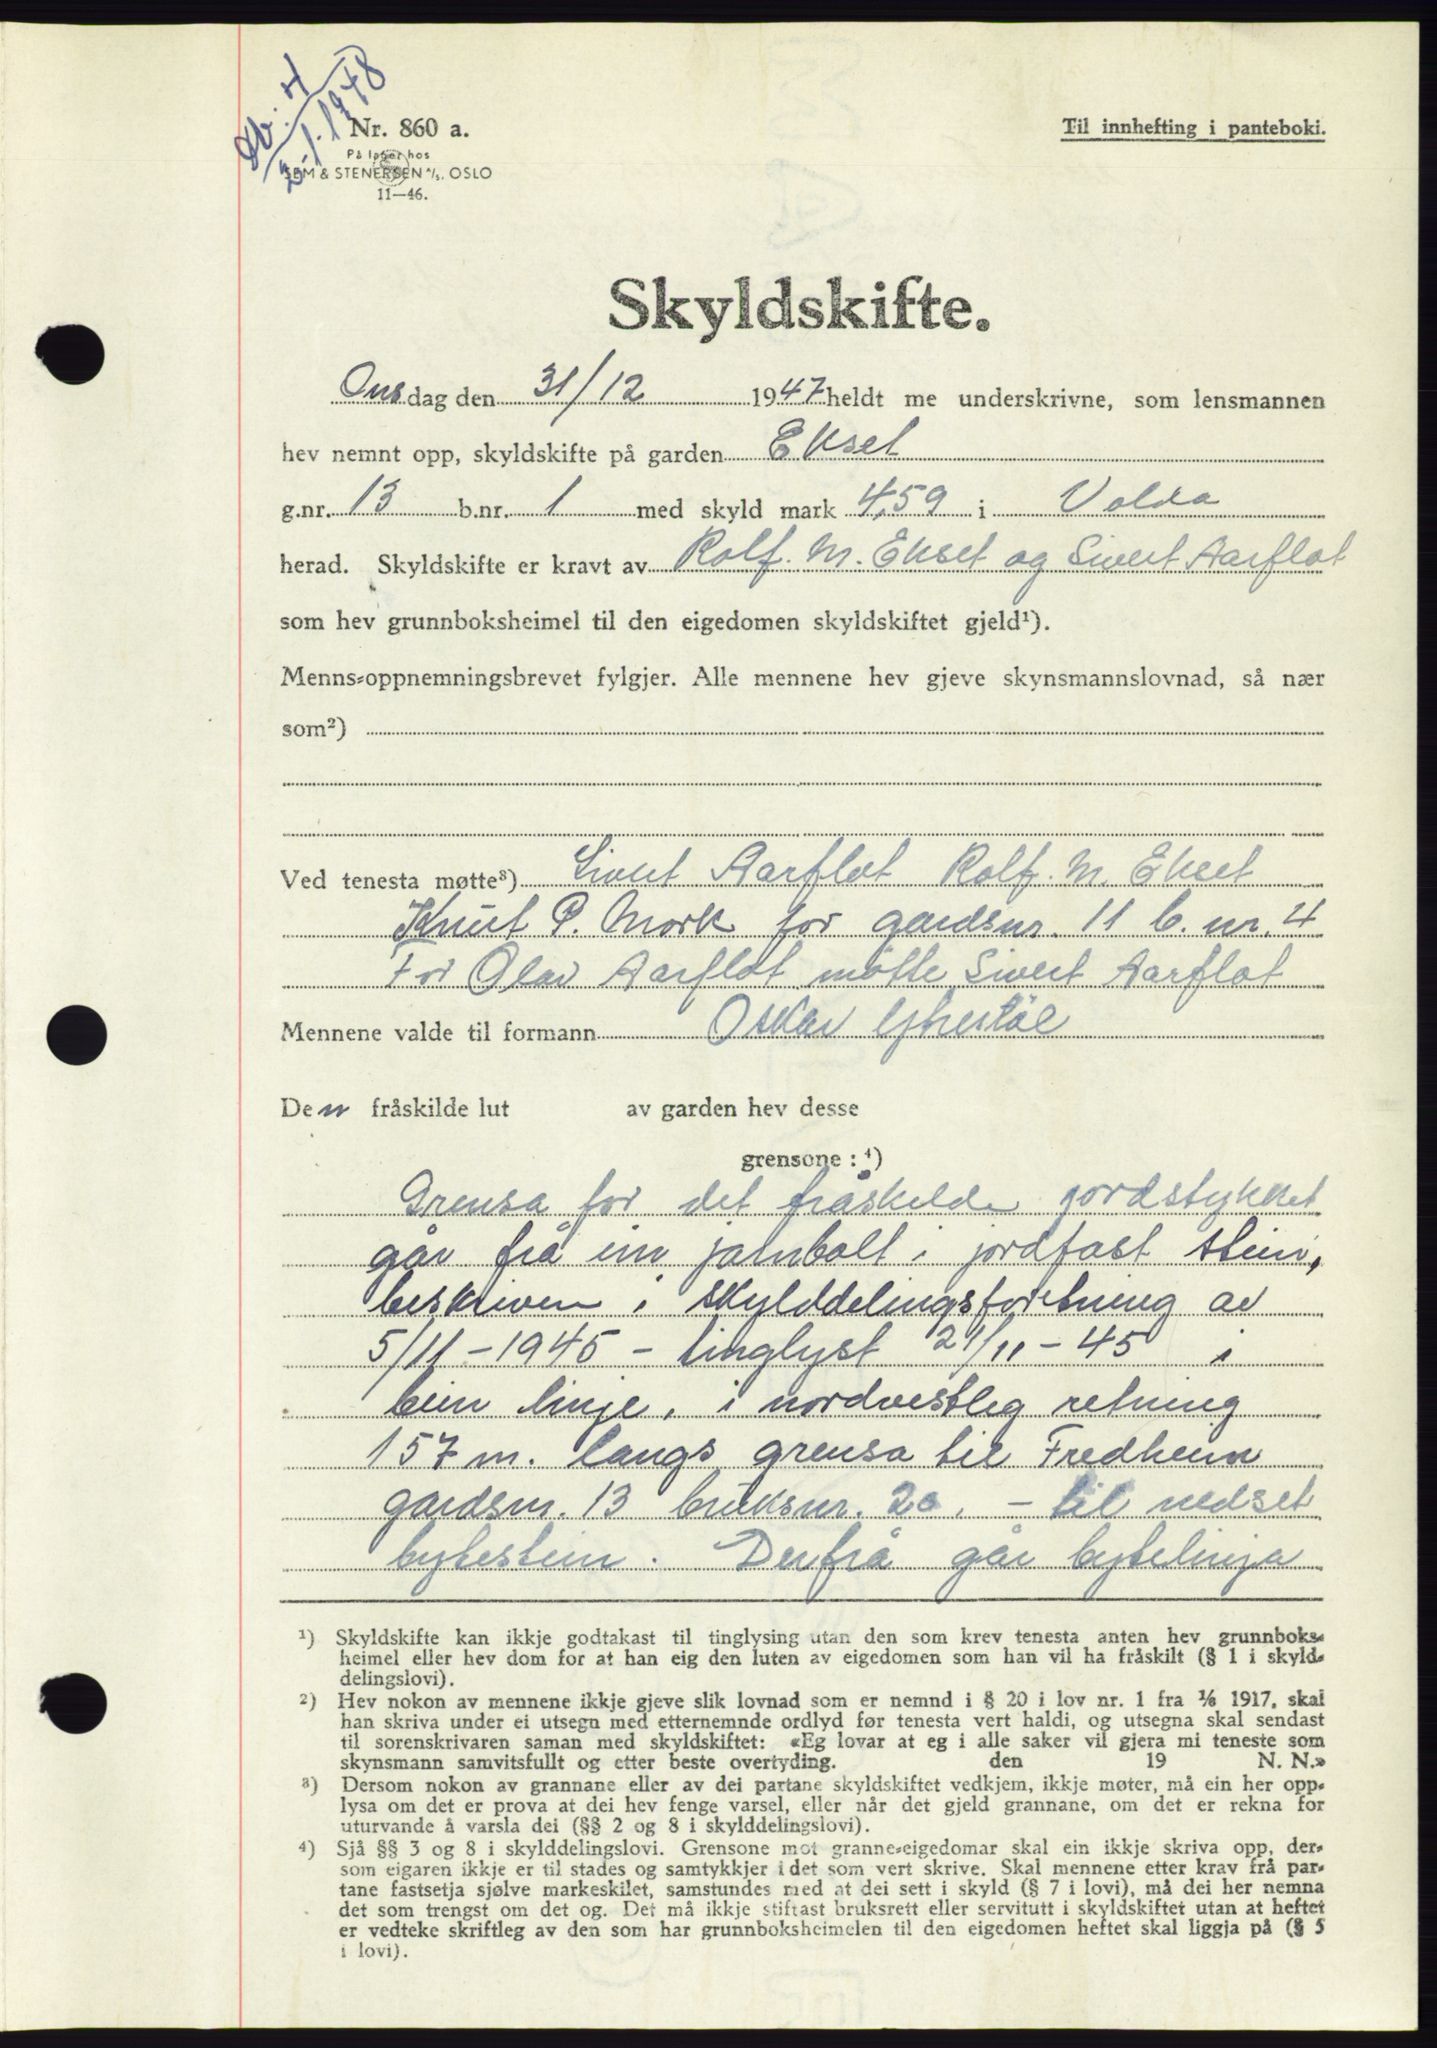 Nr. 4
2-1-1948
Nr. 860 a.
På lager hos
SEM & STENERSEN A/S, OSLO
11—46.
Til innhefting i panteboki.
Skyldskifte.
Onsdag den 31/12 1947 heldt me underskrivne, som lensmannen
hev nemnt opp, skyldskifte på garden Ekset
g.nr. 13 b.nr. 1 med skyld mark 4,59 i Volda
herad. Skyldskifte er kravt av Rolf. M. Ekset og Sivert Aarflot
som hev grunnboksheimel til den eigedomen skyldskiftet gjeld¹).
Menns-oppnemningsbrevet fylgjer. Alle mennene hev gjeve skynsmannslovnad, så nær
som²)
Ved tenesta møtte³) Sivert Aarflot Rolf. M. Ekset
Knut P. Mork for gardsnr. 11 b. nr. 4
For Olav Aarflot møtte Sivert Aarflot
Mennene valde til formann Oskar
Den fråskilde lut av garden hev desse
grensone : ⁴)
Grensa for det fråskilde jordstykket
går frå ein jarnbolt i jordfast stein,
beskriven i skylddelingsforretning av
5/11 - 1945 - tinglyst 21/11 - 45 i
bein linje, i nordvestleg retning
157 m. langs grensa til Fredheim
gardsnr. 13 bruksnr. 20. - til nedset
bytestein. Derfrå går bytelinja
¹) Skyldskifte kan ikkje godtakast til tinglysing utan den som krev tenesta anten hev grunnboks-
heimel eller hev dom for at han eig den luten av eigedomen som han vil ha fråskilt (§ 1 i skyld-
delingslovi).
²) Hev nokon av mennene ikkje gjeve slik lovnad som er nemnd i § 20 i lov nr. 1 fra 1/6 1917, skal
han skriva under ei utsegn med etternemnde ordlyd før tenesta vert haldi, og utsegna skal sendast
til sorenskrivaren saman med skyldskiftet: «Eg lovar at eg i alle saker vil gjera mi teneste som
skynsmann samvitsfullt og etter beste overtyding. den 19 N. N.»
³) Dersom nokon av grannane eller av dei partane skyldskiftet vedkjem, ikkje møter, må ein her opp-
lysa om det er prova at dei hev fenge varsel, eller når det gjeld grannane, om det er rekna for
uturvande å varsla dei (§§ 2 og 8 i skylddelingslovi).
⁴) Sjå §§ 3 og 8 i skylddelingslovi. Grensone mot granne-eigedomar skal ein ikkje skriva opp, der-
som eigaren ikkje er til stades og samtykkjer i det som vert skrive. Skal mennene etter krav frå par-
tane fastsetja sjølve markeskilet, samstundes med at dei sett i skyld (§ 7 i lovi), må dei her nemna
det som trengst om det og. Det må ikkje stiftast bruksrett eller servitutt i skyldskiftet utan at heftet
er vedteke skriftleg av den som har grunnboksheimelen til den eigedomen heftet skal liggja på (§ 5
i lovi).